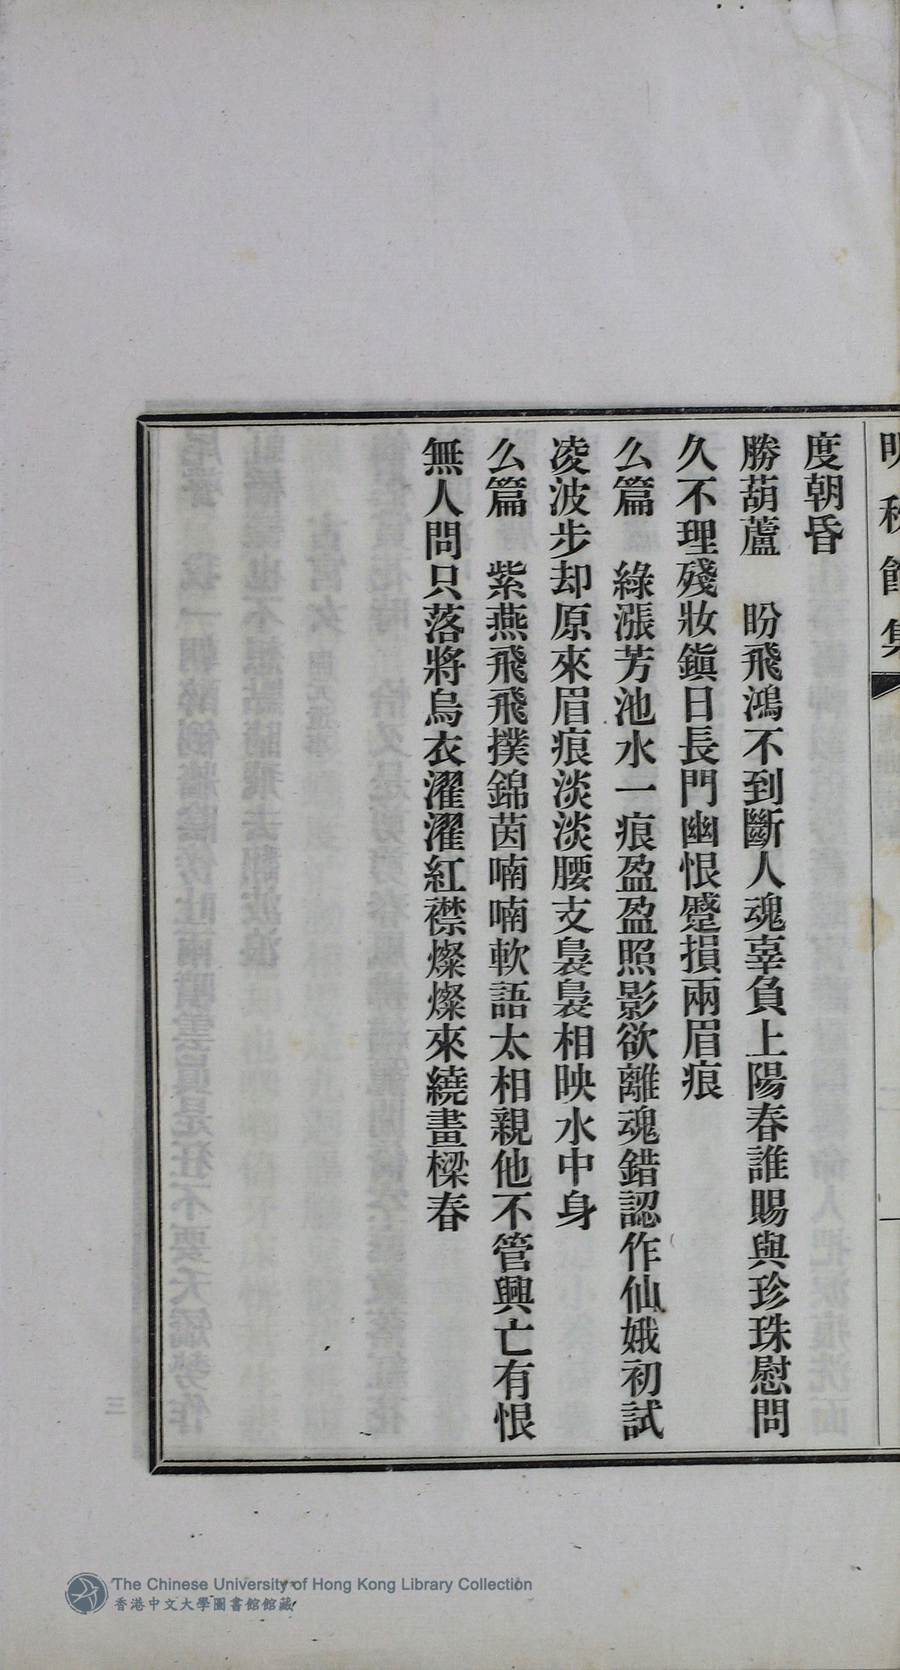 度朝昏
勝葫蘆　盼飛鴻不到斷人魂辜負上陽春誰賜與珍珠慰問
久不理殘妝鎭日長門幽恨蹙損兩眉痕
么篇　綠漲芳池水一痕盈盈照影欲離魂錯認作仙娥初試
凌波步却原來眉痕淡淡腰支裊裊相映水中身
么篇　紫燕飛飛撲錦茵喃喃軟語太相親他不管興亡有恨
無人問只落將烏衣濯濯紅襟燦燦來繞畫樑春
The Chinese University of Hong Kong Library Collection
香港中文大學圖書館館藏